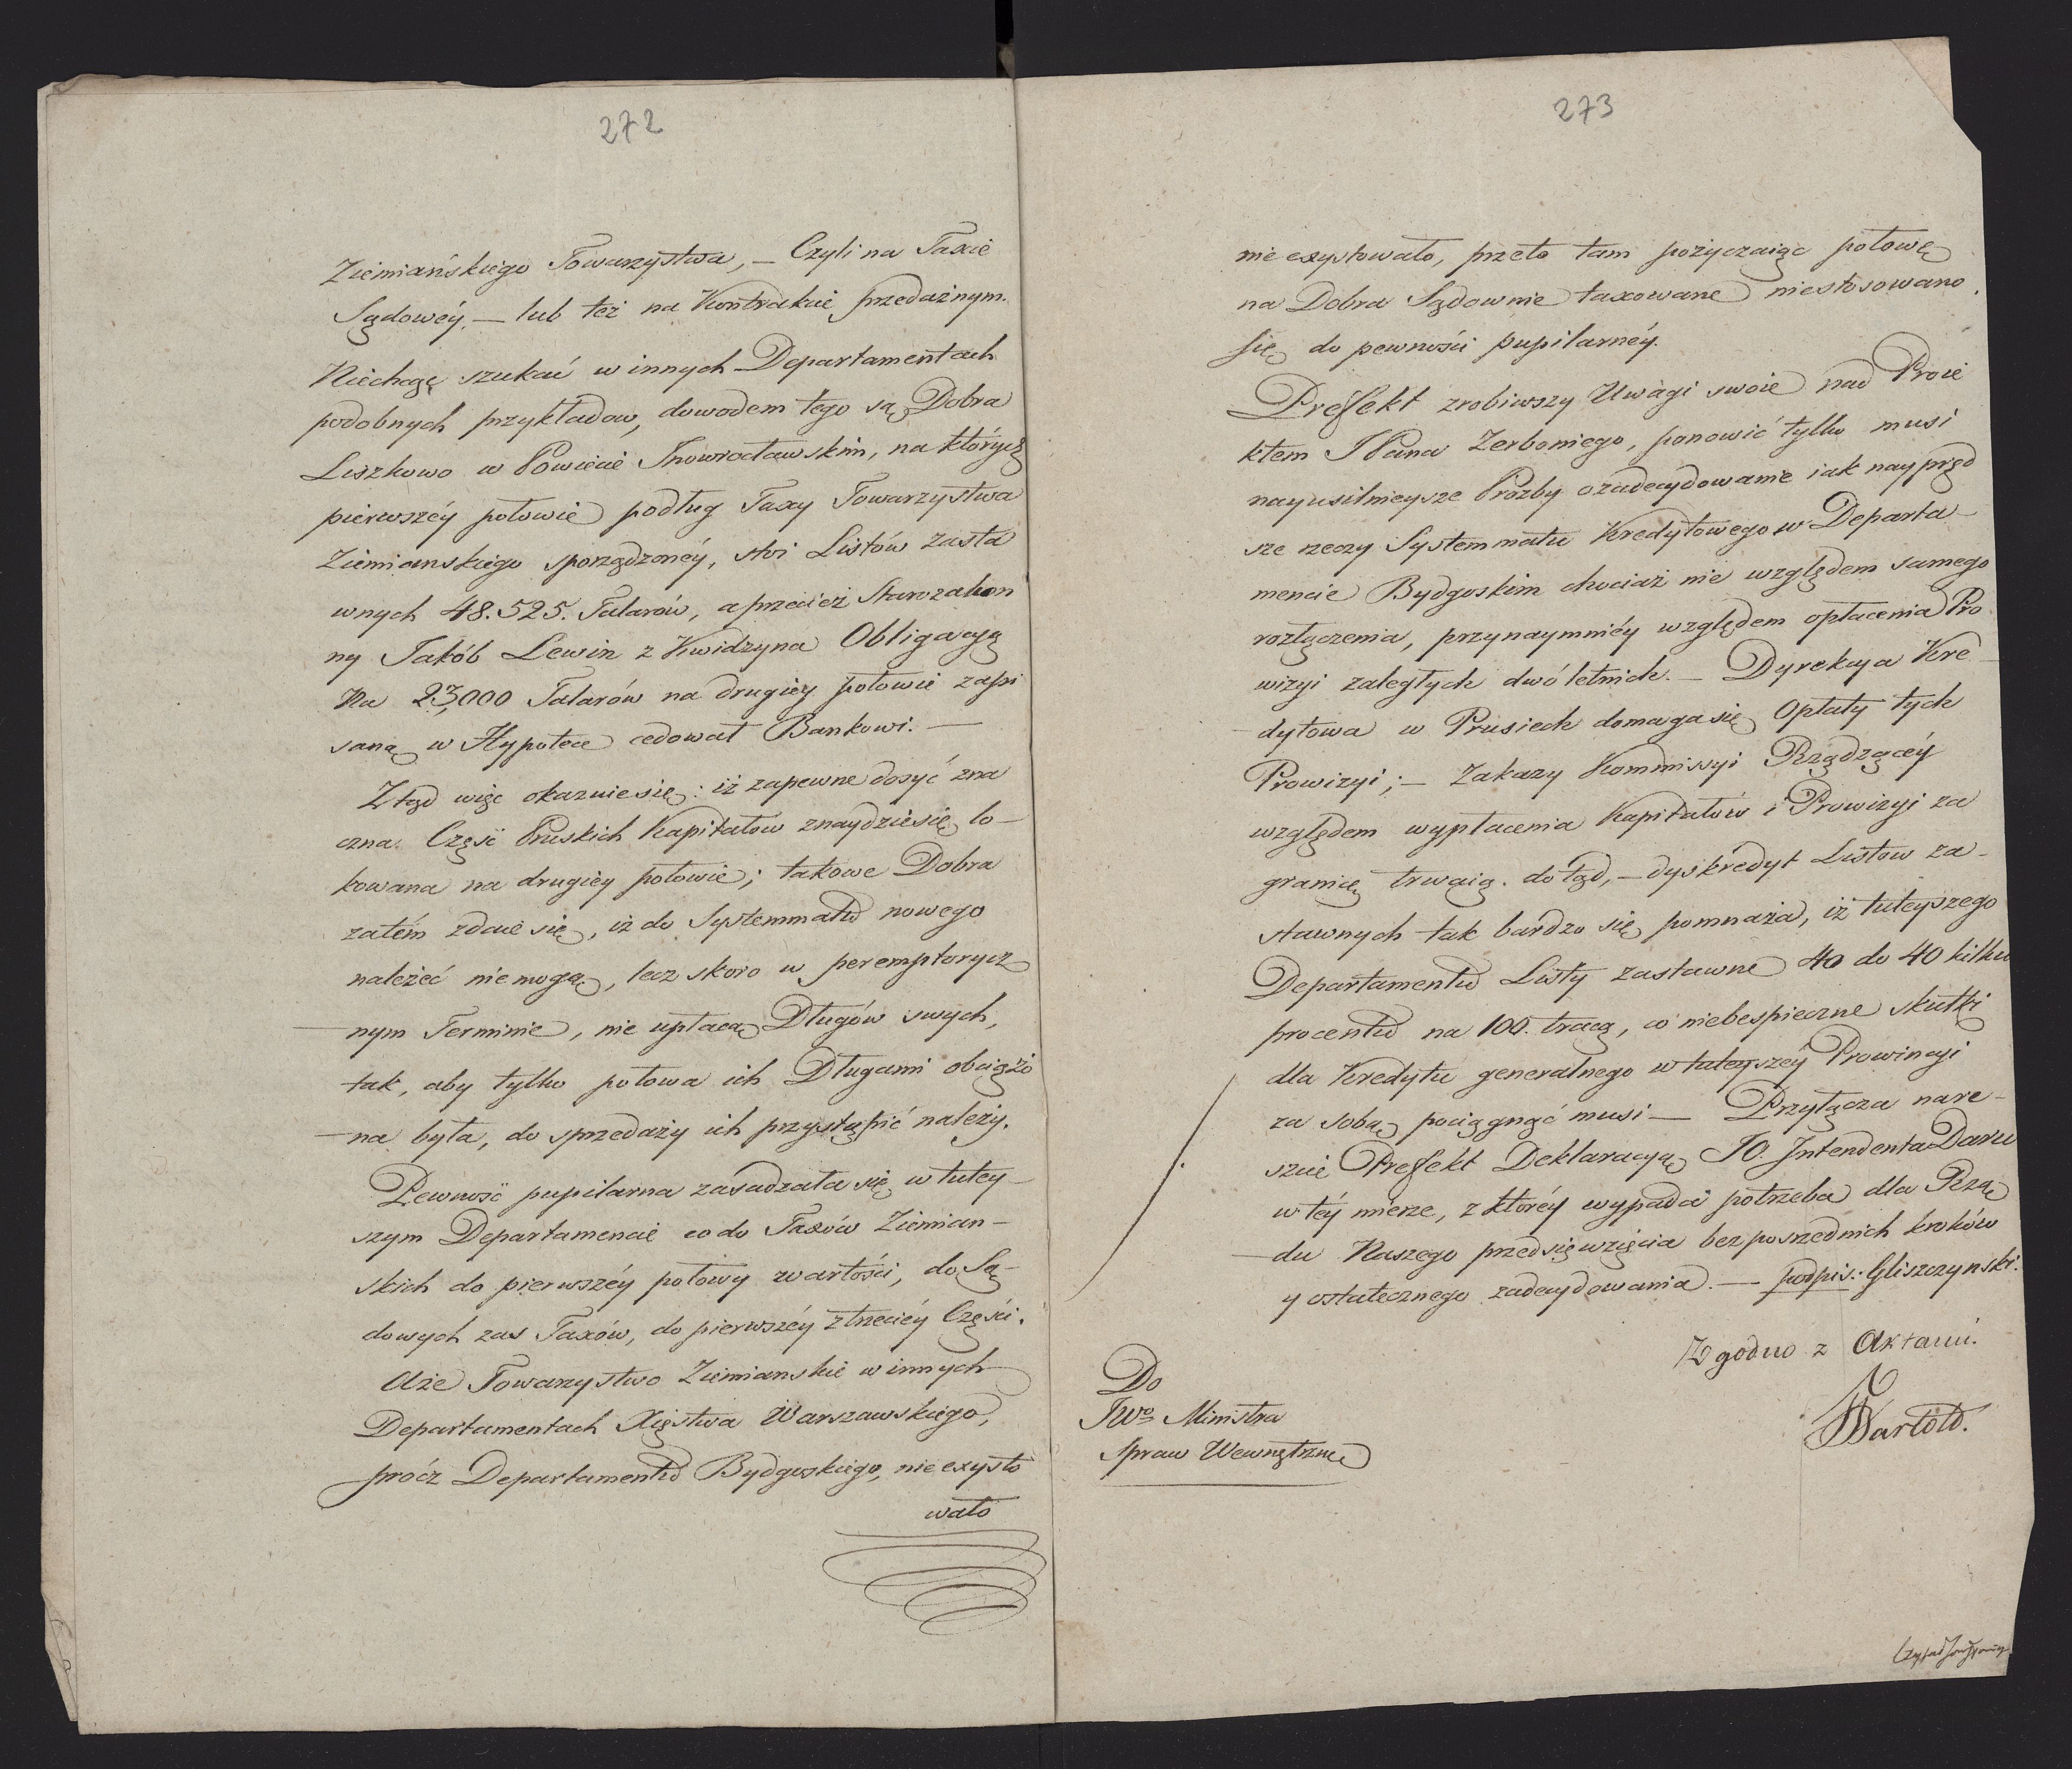 272
Ziemiańskiego Towarzystwa, — Czyli na Taxie
Sądowéy, — lub też na Kontrakcie przedażnym.
Niechcę szukać w innych Departamentach
podobnych przykładow, dowodem tego są Dobra
Liszkowo w Powiecie Inowrocławskim, na których
pierwszéy połowie podług Taxy Towarzystwa
Ziemianskiego sporządzonéy, stoi Listów zasta
wnych 48.525. Talarów, a przecież Starozakon
ny Jakób Lewin z Kwidzyna Obligacyą
Na 23,000 Talarów na drugiéy połowie zapi
saną w Hypotece cedował Bankowi. —
Ztąd więc okazuie się: iż zapewne dosyć zna
czna Część Pruskich Kapitałow znaydzie się lo-
kowana na drugiéy połowie; takowe Dobra
zatém zdaie się, iż do Systemmatu nowego
należeć nie mogą, lecz skoro w peremptorycz
nym Terminie, nie upłacą Długów swych,
tak, aby tylko połowa ich Długami obciążo
na była, do sprzedaży ich przystąpić należy.
Pewność pupilarna zasadzała się w tutey-
szym Departamencie co do Taxów Ziemian-
skich do pierwszéy połowy wartości, do Są-
dowych zas Taxów, do pierwszéy ztrzeciéy Części.
Aże Towarzystwo Ziemianskie w innych
Departamentach Xięstwa Warszawskiego,
prócz Departamentu Bydgoskiego, nie exysto
wało
273
nie exystowało, przeto tam pożyczaiąc połowę
na Dobra Sądownie taxowane niestosowano
się do pewności pupilarnéy.
Preffekt zrobiwszy Uwagi swoie nad Proié
ktem JPana Zerboniego, ponowić tylko musi
nayusilnieysze Prozby o zadecydowanie iak naypręd
sze rzeczy Systemmatu Kredytowego w Departa-
mencie Bydgoskim chociaż nie względem samego
rozłączenia, przynaymniéy względem opłacenia Pro
wizyi zaległych dwóletnich. — Dyrekcya Kre-
dytowa w Prusiech domaga się Opłaty tych
Prowizyi; — Zakazy Kommissyi Rządzącéy
względem wypłacenia Kapitałów i Prowizyi za
granicę trwaią dotąd, — dyskredyt Listow za-
stawnych tak bardzo się pomnaża, iż tuteyszego
Departamentu Listy zastawne 40 do 40 kilku
procentu na 100. tracą, co niebespieczne skutki
dla Kredytu generalnego w tuteyszéy Prowincyi
za sobą pociągnąć musi — Przyłącza nare-
szcie Preffekt Deklaracyą JO. Intendenta Daru
w téy mierze, z któréy wypada potrzeba dla Rzą
du Naszego przedsięwzięcia bezposrzednich kroków
y ostatecznego zadecydowania. — podpis: Gliszczynski.
Zgodno z Aktami.
Do
JWo Ministra
Spraw Wewnętrzne